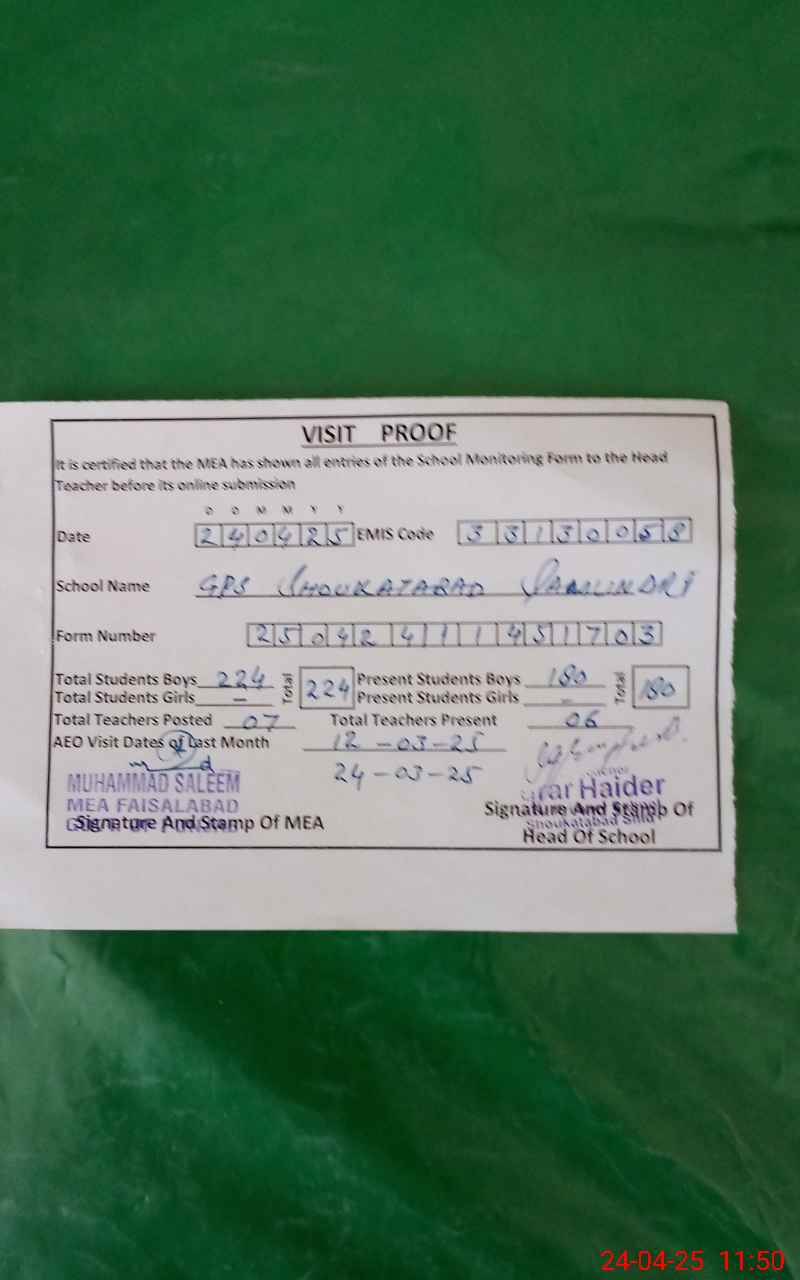 VISIT PROOF
It is certified that the MEA has shown all entries of the School Monitoring Form to the Head
Teacher before its online submission
D D M M Y Y
Date 240425 EMIS Code 33130058
School Name GPS SHOUKATABAD SAMUNDRI
Form Number 250424111451703
Total Students Boys 224 Total 224 Present Students Boys 180 Total 180
Total Students Girls – Present Students Girls –
Total Teachers Posted 07 Total Teachers Present 06
AEO Visit Dates of Last Month 12-03-25
24-03-25
MUHAMMAD SALEEM
MEA FAISALABAD
Haider
Signature And Stamp Of MEA
Signature And Stamp Of
Shoukatabad
Head Of School
24-04-25 11:50